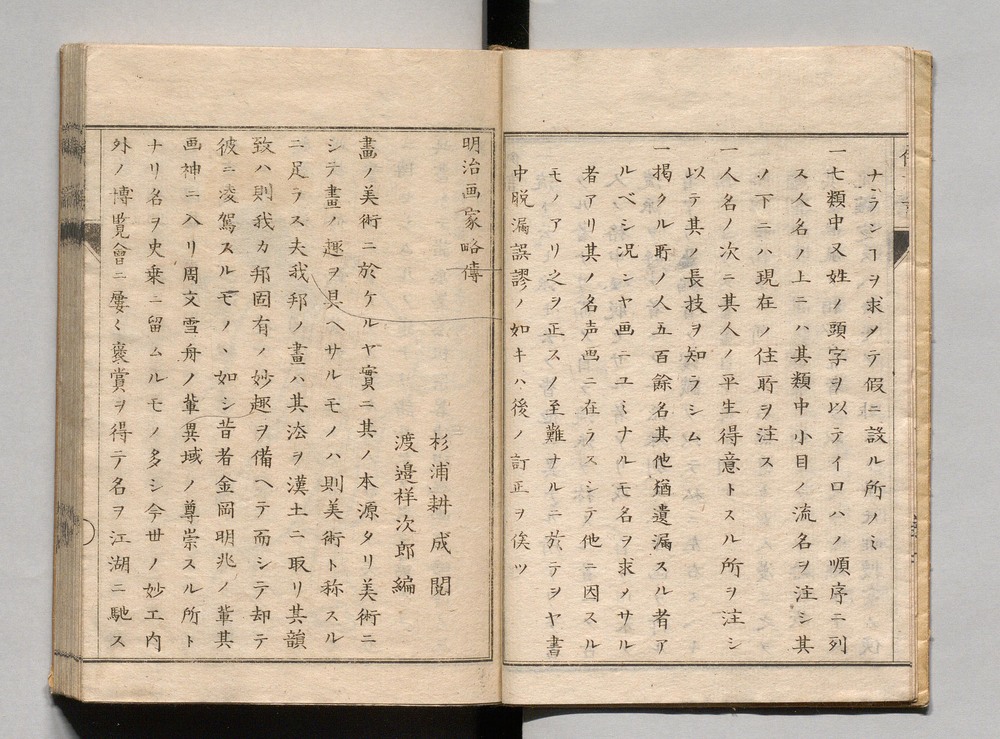 ナランコヲ求メテ假ニ設ル所ノミ
一七類中又姓ノ頭字ヲ以テイロハノ順序ニ列
ス人名ノ上ニハ其類中小目ノ流名ヲ注シ其
ノ下ニハ現在ノ住所ヲ注ス
一人名ノ次ニ其人ノ平生得意トスル所ヲ注シ
以テ其ノ長技ヲ知ラシム
一掲クル所ノ人五百餘名其他猶遺漏スル者ア
ルベシ况ンヤ画ニユミナルモ名ヲ求メサル
者アリ其ノ名声画ニ在ラスシテ他ニ因スル
モノアリ之ヲ正スノ至難ナルニ於テヲヤ書
中脱漏誤謬ノ如キハ後ノ訂正ヲ俟ツ
明治画家略傳
杉浦耕成閲
渡邉祥次郎編
畵ノ美術ニ於ケルヤ實ニ其ノ本源タリ美術ニ
シテ畵ノ趣ヲ具ヘサルモノハ則美術ト称スル
ニ足ラス夫我邦ノ畵ハ其法ヲ漢土ニ取リ其韻
致ハ則我カ邦固有ノ妙趣ヲ備ヘテ而シテ却テ
彼ニ凌駕スルモノヽ如シ昔者金岡明兆ノ輩其
画神ニ入リ周文雪舟ノ輩異域ノ尊崇スル所ト
ナリ名ヲ史乗ニ留ムルモノ多シ今世ノ妙工内
外ノ博覧會ニ屡〻褒賞ヲ得テ名ヲ江湖ニ馳ス